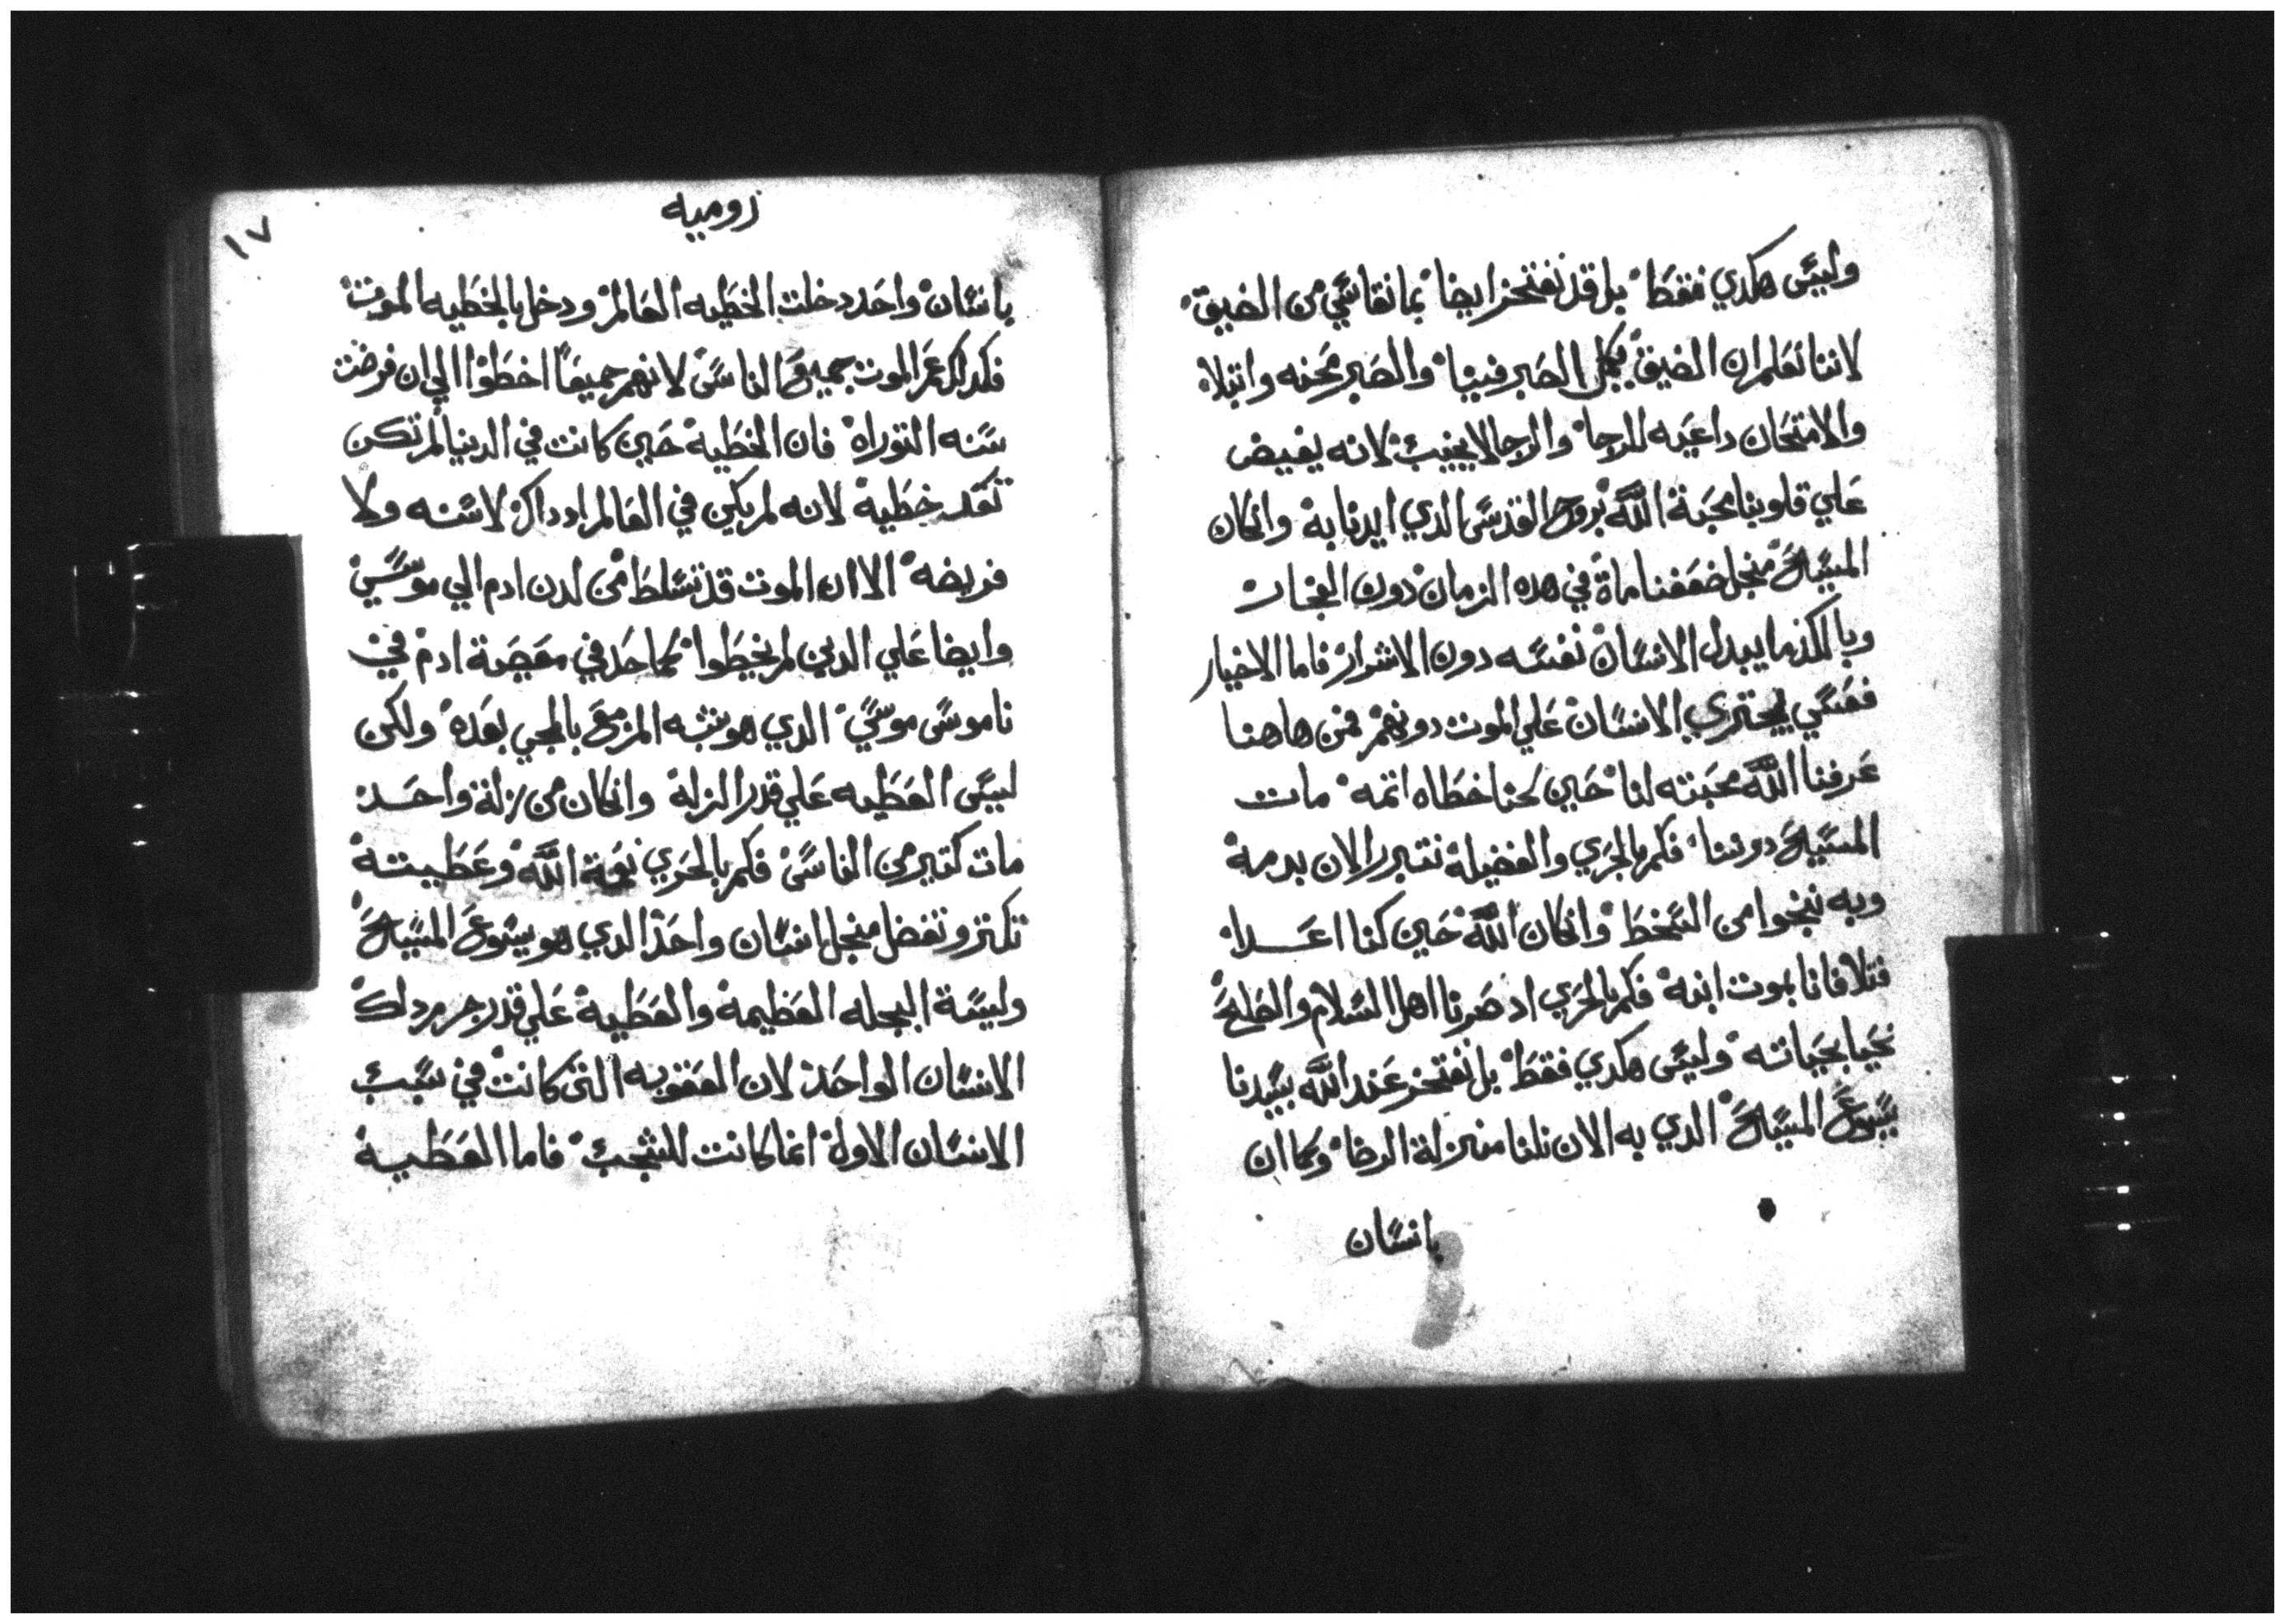 وليس هكدي فقط بل قد نفتخر ايضا بما نقاسي من الضيق
لاننا نعلم ان الضيق يكمل الصبر فينا والصبر محنه وابتلا
والامتحان داعيه للرجا والرجا لا يخيب لانه يفيض
علي قلوبنا محبة الله بروح القدس الدي ايدنا به وان كان
المسيح منجل ضعفنا مات في هده الزمان دون الفجار
وبالكد ما يبدل الانسان نفسه دون الاشرار فاما الاخيار
فعسي يجتري الانسان علي الموت دونهم فمن هاهنا
عرفنا الله محبته لنا حين كنا خطاه اتمه مات
المسيح دوننا فكم بالحري والفضيلة نتبرر الان بدمة
وبه ننجوا من السخط وان كان الله حين كنا اعدا
فتلافانا بموت ابنه فكم بالحري اد صرنا اهل السلام والصلح
نحيا بحياته وليس هكدي فقط بل نفتخر عند الله بسيدنا
يسوع المسيح الدي به الان نلنا منزلة الرضا وكما ان
بانسان
روميه
١٧
بانسان واحد دخلت الخطيه العالم ودخل بالخطيه الموت
فكداك عم الموت جميع الناس لانهم جميعا اخطوا الي ان فرضت
سنه التوراه فان الخطية حين كانت في الدنيا لم تكن
تعد خطية لانه لم يكن في العالم اد داك لا سنه ولا
فريضه الا ان الموت قد تسلط من لدن ادم الي موسي
وايضا علي الدين لم يخطوا كما حد في معصية ادم في
ناموس موسي الدي هو شبه المزمع بالمجي بعده ولكن
ليس العطيه علي قدر الزلة وان كان من زلة واحد
مات كتير من الناس فكم بالحري نعمة الله وعطيته
تكتر وتفضل منجل انسان واحد الدي هو يسوع المسيح
وليسة البجله العظيمة والعطية علي قدر جرم داك
الانسان الواحد لان العقوبه التي كانت في سبب
الانسان الاولة انما كانت للشجب فاما العطية